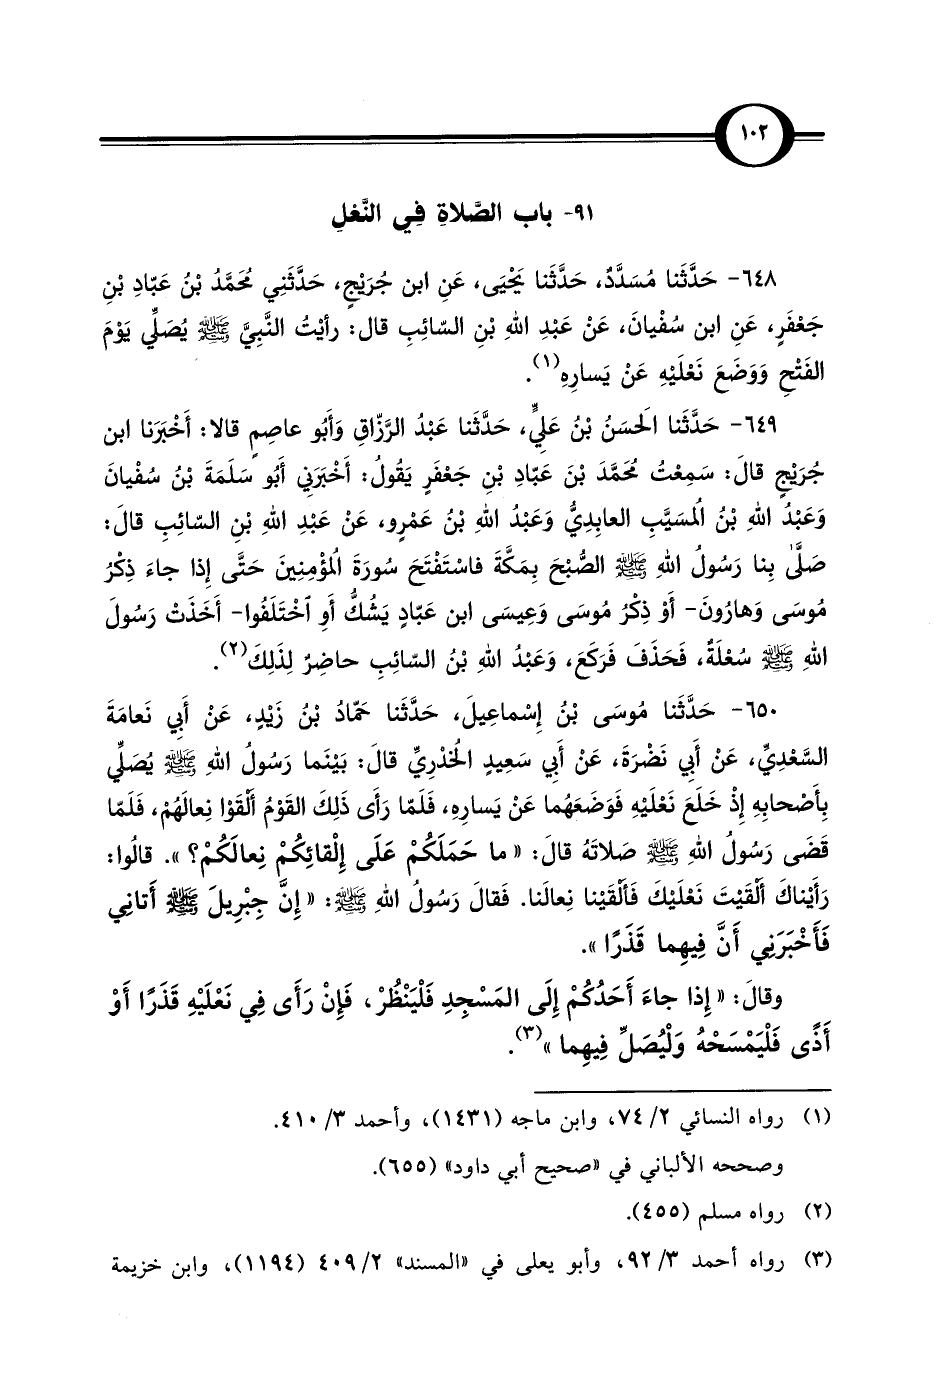 ١٠٢
٩١- باب الصَّلاةِ فِي النَّعْلِ
٦٤٨- حَدَّثَنا مُسَدَّدٌ، حَدَّثَنا يَحْيَى، عَنِ ابن جُرَيْجٍ، حَدَّثَنِي مُحَمَّدُ بْنُ عَبّادِ بْنِ
جَعْفَرٍ، عَنِ ابن سُفْيانَ، عَنْ عَبْدِ اللهِ بْنِ السّائِبِ قال: رأيْتُ النَّبِيَّ ﷺ يُصَلِّي يَوْمَ
الفَتْحِ وَوَضَعَ نَعْلَيْهِ عَنْ يَسارِهِ(١).
٦٤٩- حَدَّثَنا الَحسَنُ بْنُ عَلِيٍّ، حَدَّثَنا عَبْدُ الرَّزّاقِ وَأَبُو عاصِمٍ قالا: أَخْبَرَنا ابن
جُرَيْجٍ قالَ: سَمِعْتُ مُحَمَّدَ بْنَ عَبّادِ بْنِ جَعْفَرٍ يَقُولُ: أَخْبَرَنِي أَبُو سَلَمَةَ بْنُ سُفْيانَ
وَعَبْدُ اللهِ بْنُ الُمسَيَّبِ العابِدِيُّ وَعَبْدُ اللهِ بْنُ عَمْرٍو، عَنْ عَبْدِ اللهِ بْنِ السّائِبِ قالَ:
صَلَّى بِنا رَسُولُ اللهِ ﷺ الصُّبْحَ بِمَكَّةَ فاسْتَفْتَحَ سُورَةَ الُمؤْمِنِينَ حَتَّى إِذا جاءَ ذِكْرُ
مُوسَى وَهارُونَ- أَوْ ذِكْرُ مُوسَى وَعِيسَى ابن عَبّادٍ يَشُكُّ أَوِ اَخْتَلَفُوا- أَخَذَتْ رَسُولَ
اللهِ ﷺ سُعْلَةٌ، فَحَذَفَ فَرَكَعَ، وَعَبْدُ اللهِ بْنُ السّائِبِ حاضِرٌ لِذَلِكَ(٢).
٦٥٠- حَدَّثَنا مُوسَى بْنُ إِسْماعِيلَ، حَدَّثَنا حَمّادُ بْنُ زَيْدٍ، عَنْ أَبِي نَعامَةَ
السَّعْدِيِّ، عَنْ أَبِي نَضْرَةَ، عَنْ أَبِي سَعِيدٍ الُخدْرِيِّ قالَ: بَيْنَما رَسُولُ اللهِ ﷺ يُصَلِّي
بِأَصْحابِهِ إِذْ خَلَعَ نَعْلَيْهِ فَوَضَعَهُما عَنْ يَسارِهِ، فَلَمّا رَأى ذَلِكَ القَوْمُ أَلْقَوْا نِعالَهُمْ، فَلَمّا
قَضَى رَسُولُ اللهِ ﷺ صَلاتَهُ قالَ: « ما حَمَلَكُمْ عَلَى إِلْقائِكُمْ نِعالَكُمْ؟ ». قالُوا:
رَأَيْناكَ أَلْقَيْتَ نَعْلَيْكَ فَأَلْقَيْنا نِعالَنا. فَقالَ رَسُولُ اللهِ ﷺ: « إِنَّ جِبْرِيلَ ﷺ أَتانِي
فَأَخْبَرَنِي أَنَّ فِيهِما قَذَرًا ».
وقالَ: « إِذا جاءَ أَحَدُكُمْ إِلَى المَسْجِدِ فَلْيَنْظُرْ، فَإِنْ رَأَى فِي نَعْلَيْهِ قَذَرًا أَوْ
أَذًى فَلْيَمْسَحْهُ وَلْيُصَلِّ فِيهِما »(٣).
(١) رواه النسائي ٢/ ٧٤، وابن ماجه (١٤٣١)، وأحمد ٣/ ٤١٠.
وصححه الألباني في «صحيح أبي داود» (٦٥٥).
(٢) رواه مسلم (٤٥٥).
(٣) رواه أحمد ٣/ ٩٢، وأبو يعلى في «المسند» ٢/ ٤٠٩ (١١٩٤)، وابن خزيمة